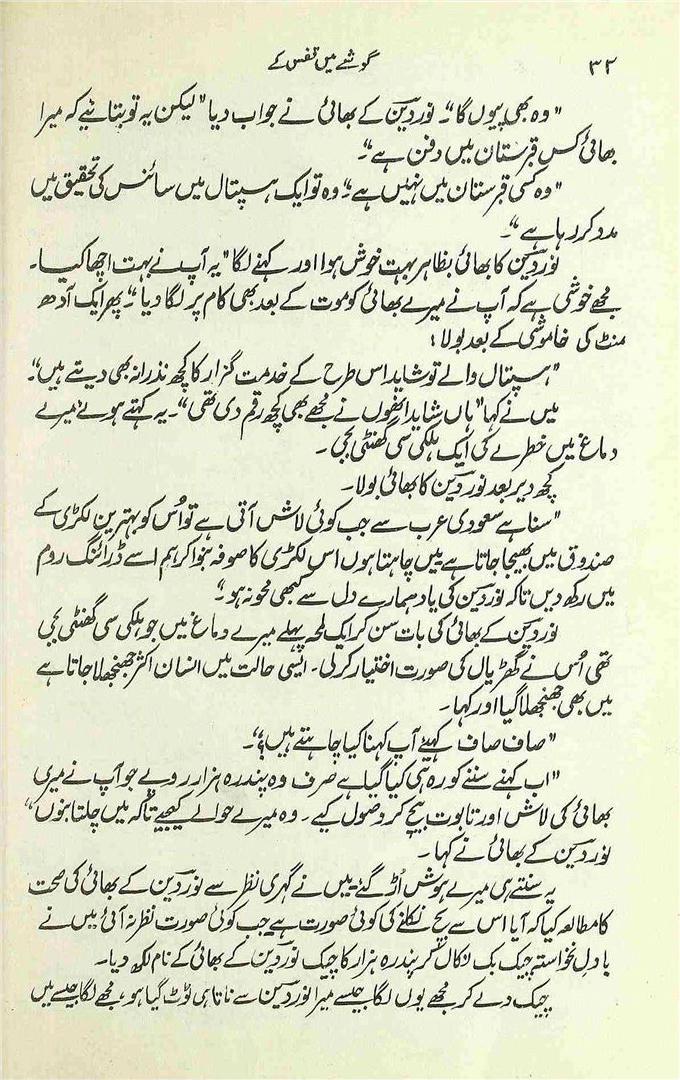 ۳۲
گوشے میں قفس کے
"وہ بھی پیوں گا"۔ نور دین کے بھائی نے جواب دیا "لیکن یہ تو بتائیے کہ میرا
بھائی کس قبرستان میں دفن ہے"۔
"وہ کسی قبرستان میں نہیں ہے"۔ وہ تو ایک ہسپتال میں سائنس کی تحقیق میں
مدد کر رہا ہے"۔
نور دین کا بھائی بظاہر بہت خوش ہوا اور کہنے لگا "یہ آپ نے بہت اچھا کیا۔
مجھے خوشی ہے کہ آپ نے میرے بھائی کو موت کے بعد بھی کام پر لگا دیا"۔ پھر ایک آدھ
منٹ کی خاموشی کے بعد بولا:
"ہسپتال والے تو شاید اس طرح کے خدمت گزار کا کچھ نذرانہ بھی دیتے ہیں"۔
میں نے کہا "ہاں شاید انھوں نے مجھے بھی کچھ رقم دی تھی"۔ یہ کہتے ہوئے میرے
دماغ میں خطرے کی ایک ہلکی سی گھنٹی بجی۔
کچھ دیر بعد نور دین کا بھائی بولا۔
"سنا ہے سعودی عرب سے جب کوئی لاش آتی ہے تو اُس کو بہترین لکڑی کے
صندوق میں بھیجا جاتا ہے میں چاہتا ہوں اس لکڑی کا صوفہ بنوا کر ہم اسے ڈرائنگ روم
میں رکھ دیں تاکہ نور دین کی یاد ہمارے دل سے کبھی محو نہ ہو"۔
نور دین کے بھائی کی بات سن کر ایک لمحہ پہلے میرے دماغ میں جو ہلکی سی گھنٹی بجی
تھی اُس نے گھڑیال کی صورت اختیار کر لی۔ ایسی حالت میں انسان اکثر جھنجھلا جاتا ہے
میں بھی جھنجھلا گیا اور کہا۔
"صاف صاف کہیے آپ کہنا کیا چاہتے ہیں؟"۔
"اب کہنے سننے کو رہ ہی کیا گیا ہے صرف وہ پندرہ ہزار روپے جو آپ نے میری
بھائی کی لاش اور تابوت بیچ کر وصول کیے۔ وہ میرے حوالے کیجیے تاکہ میں چلتا بنوں"
نور دین کے بھائی نے کہا۔
یہ سنتے ہی میرے ہوش اُڑ گئے۔ میں نے گہری نظر سے نور دین کے بھائی کی صحت
کا مطالعہ کیا کہ آیا اس سے بچ نکلنے کی کوئی صورت ہے جب کوئی صورت نظر نہ آئی میں نے
بادلِ نخواستہ چیک بک نکال کر پندرہ ہزار کا چیک نور دین کے بھائی کے نام لکھ دیا۔
چیک دے کر مجھے یوں لگا جیسے میرا نور دین سے ناتا ہی ٹوٹ گیا ہو، مجھے لگا جیسے میں